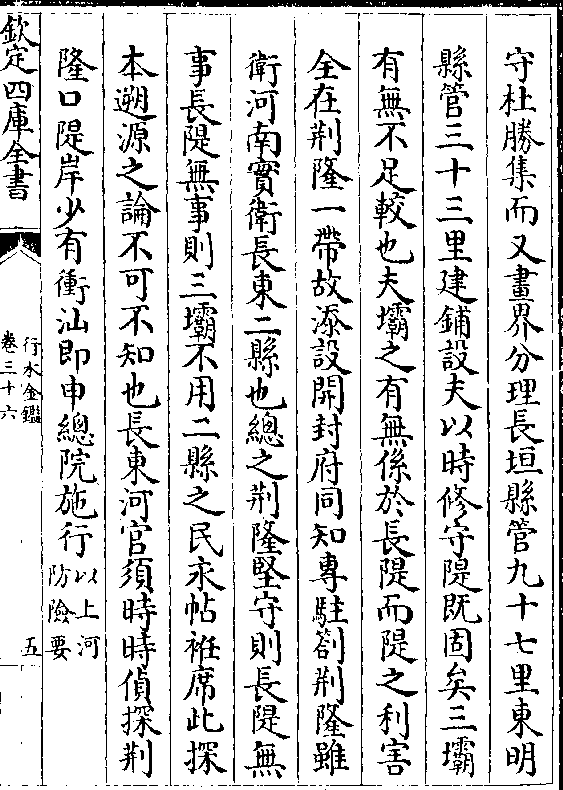 守杜勝集而又畫界分理長垣縣管九十七里東明
縣管三十三里建鋪設夫以時修守隄既固矣三壩
有無不足較也夫壩之有無係於長隄而隄之利害
全在荆隆一帶故添設開封府同知專駐劄荆隆雖
衛河南實衛長東二縣也總之荆隆堅守則長隄無
事長隄無事則三壩不用二縣之民永帖袵席此探
本遡源之論不可不知也長東河官須時時偵探荆
隆口隄岸少有衝汕即申總院施行以上河防險要
欽定四庫全書
行水金鑑
卷三十六
五